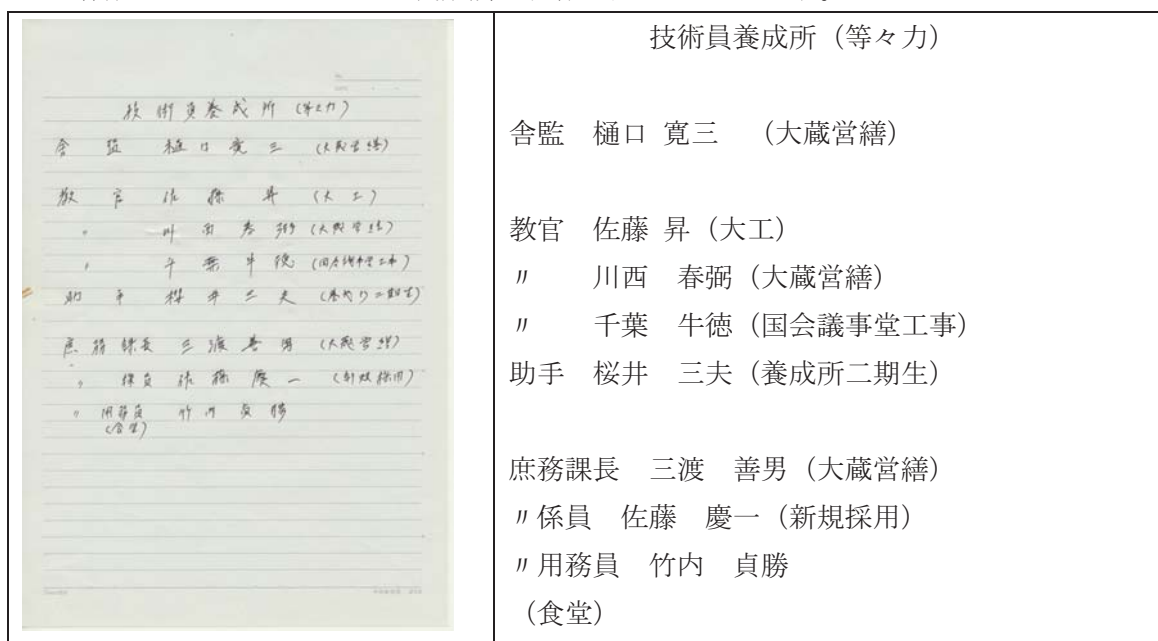 技術員養成所(等々力)
舎監 樋口寛三 (大蔵営繕)
教官 佐藤昇 (大工)
〃 川西春弼 (大蔵営繕)
〃 千葉牛徳 (国会議事堂工事)
助手 桜井三夫 (養成所二期生)
庶務課長 三渡善男 (大蔵営繕)
〃 係員 佐藤慶一 (新規採用)
〃 用務員 竹内貞勝
(食堂)
技術員養成所(等々力)
舎監 樋口 寛三 (大蔵営繕)
教官 佐藤 昇(大工)
〃 川西 春弼(大蔵営繕)
〃 千葉 牛徳(国会議事堂工事)
助手 桜井 三夫(養成所二期生)
庶務課長 三渡 善男(大蔵営繕)
〃係員 佐藤 慶一(新規採用)
〃用務員 竹内 貞勝
(食堂)